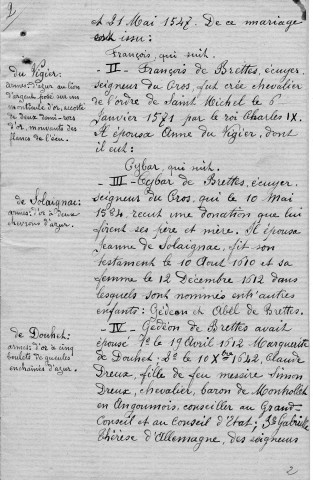 et 21 Mai 1547. De ce mariage
est issu:
François, qui suit.
— II — François de Brettes, écuyer,
seigneur du Cros, fut créé chevalier
de l'ordre de Saint Michel le 6
Janvier 1571 par le roi Charles IX.
Il épousa Anne du Vigier, dont
il eut:
Cybar, qui suit.
— III — Cybar de Brettes, écuyer,
seigneur du Cros, qui le 10 Mai
1584, reçut une donation que lui
firent ses père et mère. Il épousa
Jeanne de Solaignac, fit son
testament le 10 Aout 1610 et sa
femme le 12 Décembre 1612 dans
lesquels sont nommés entr'autres
enfants: Gédéon et Abel de Brettes.
— IV — Gédéon de Brettes avait
épousé 1º le 19 Avril 1612 Marguerite
de Douhet; 2º le 10 Xbre 1642, Claude
Dreux, fille de feu messire Simon
Dreux, chevalier, baron de Monrollet
en Angoumois, conseiller au Grand-
Conseil et au Conseil d'Etat; 3º Gabrielle
Thérèse d'Allemagne, des seigneurs
du Vigier:
armes: d'or au lion
d'argent posé sur un
monticule d'or, accosté
de deux demi-vols
d'or, mouvants des
flancs de l'écu.
de Solaignac:
armes: d'or à deux
chevrons d'azur.
de Douhet:
armes: d'or à cinq
boulets de gueules
enchaînés d'azur.
2